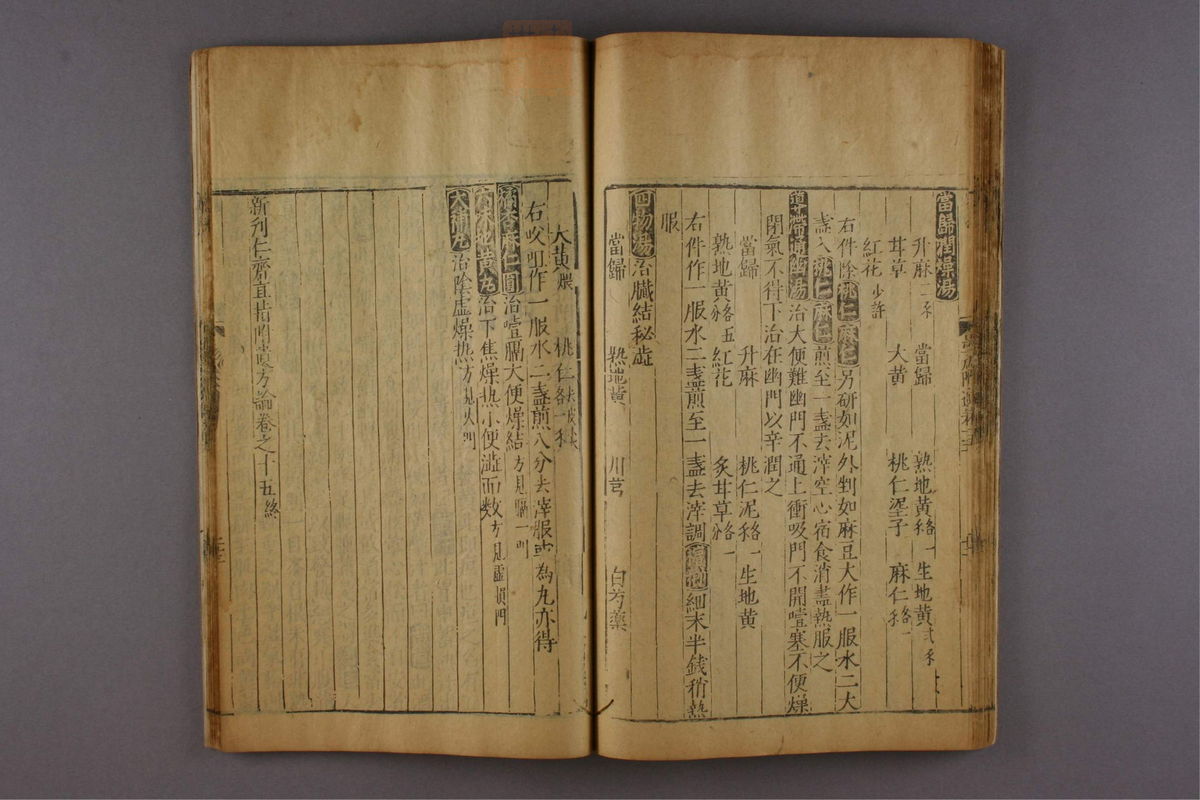 當歸潤燥湯
升麻二𠆤 當歸 熟地黄 一 生地黄弍𠆤
甘草 大黄 桃仁埿子 麻仁 一
紅花少許
右件除桃仁麻仁另研如泥外剉如麻豆大作一服水二大
盞入桃仁麻仁煎至一盞去滓空心宿食消盡熱服之
導滯通幽湯治大便難幽門不通上衝吸門不開噎塞不便燥
閉氣不得下治在幽門以辛潤之
當歸 升麻 桃仁泥 一 生地黄
熟地黄 五 紅花 炙甘草 一
右件作一服水二盞煎至一盞去滓調檳榔細末半錢稍熱
服
四物湯治臟結秘澁
當歸 熟地黄 川芎 白芍藥
大黄煨 桃仁 各一
右㕮咀作一服水二盞煎八分去滓服或為丸亦得
橘杏麻仁圓治噎膈大便燥結方見膈一門
六味地黄丸治下焦燥热小便澁而数方見虚損門
大補丸治陰虚燥热方見火門
新刋仁齋直指附遺方論卷之十五終